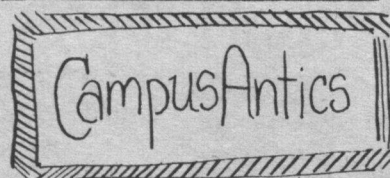 Campus Antics